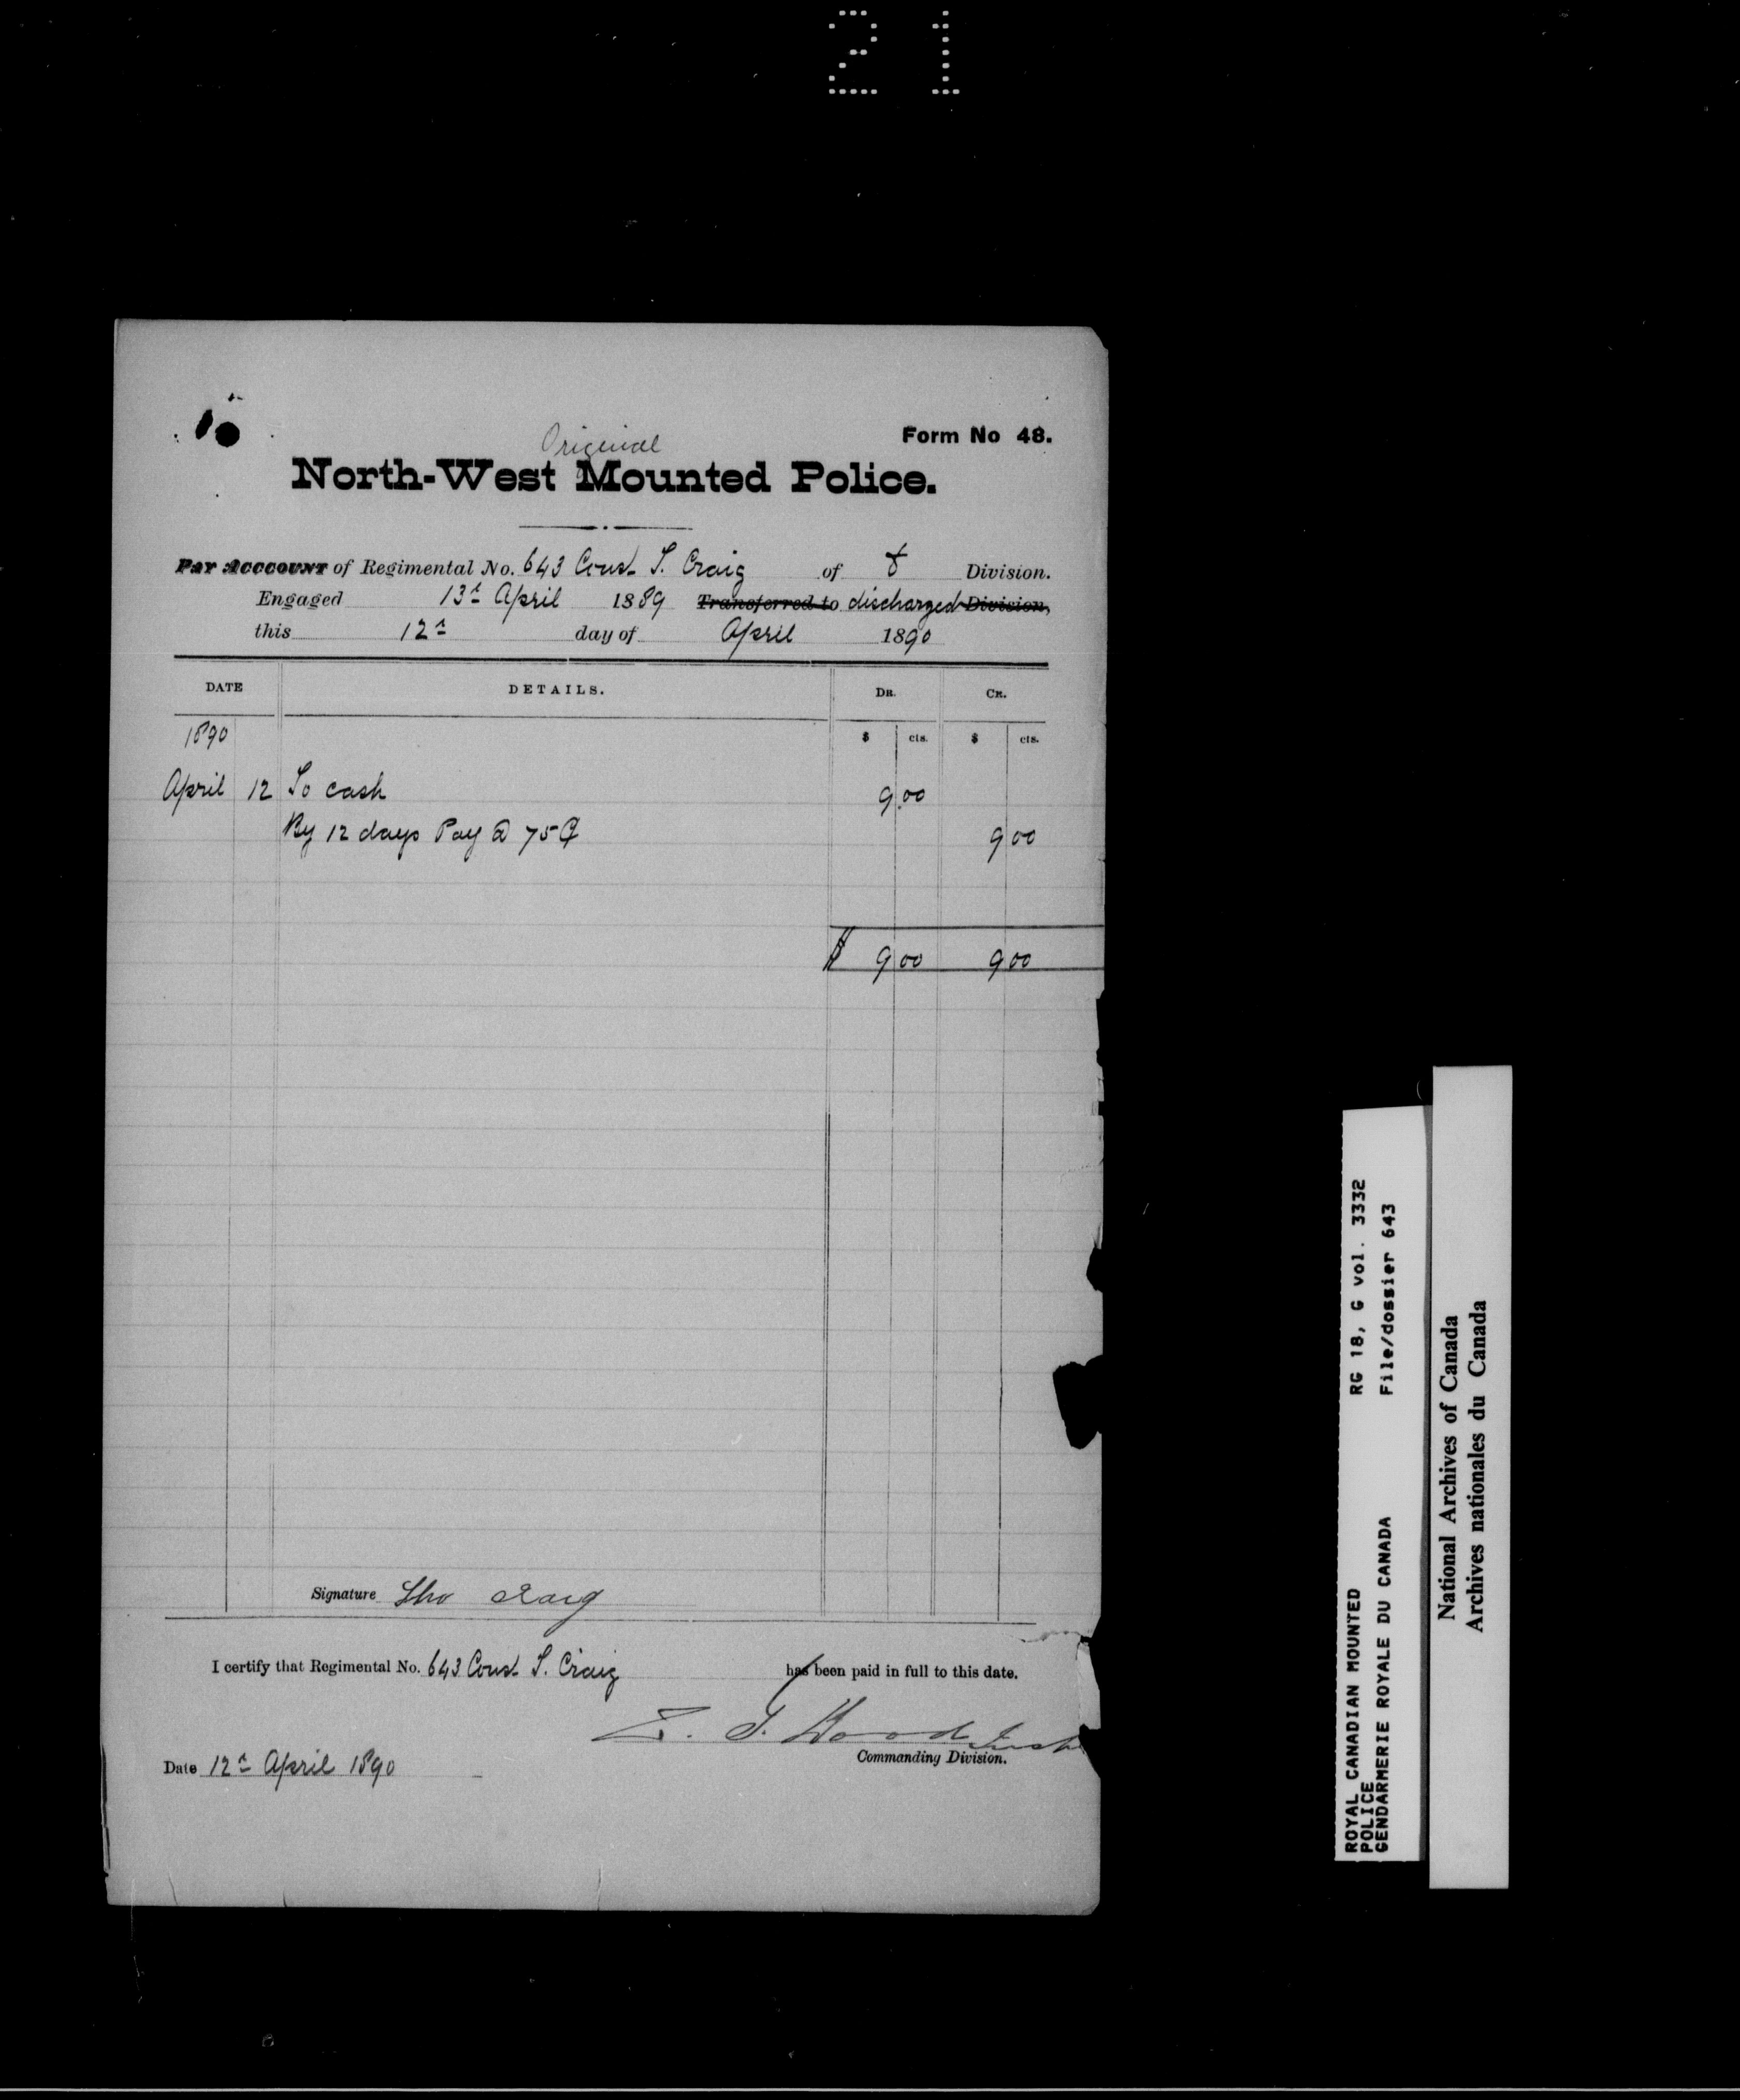 21
Form No 48.
Original
North-West Mounted Police.
Pay Acccount of Regimental No. 643 Const T. Craig of Division.
Engaged 13th April 1889 Transferred to discharged Division,
this 12th day of April 1890
DATE DETAILS. DR. CR.
1890 $ cts. $ cts.
April 12 To cash 9 00
By 12 days Pay @ 75 ¢ 9 00
$ 9 00 9 00
Signature Tho Craig
I certify that Regimental No. 643 Const T. Craig has been paid in full to this date.
Z. T. Wood
Commanding Division.
Date 12th April 1890
ROYAL CANADIAN MOUNTED RG 18, G vol. 3332
POLICE
GENDARMERIE ROYALE DU CANADA File/dossier 643
National Archives of Canada
Archives nationales du Canada